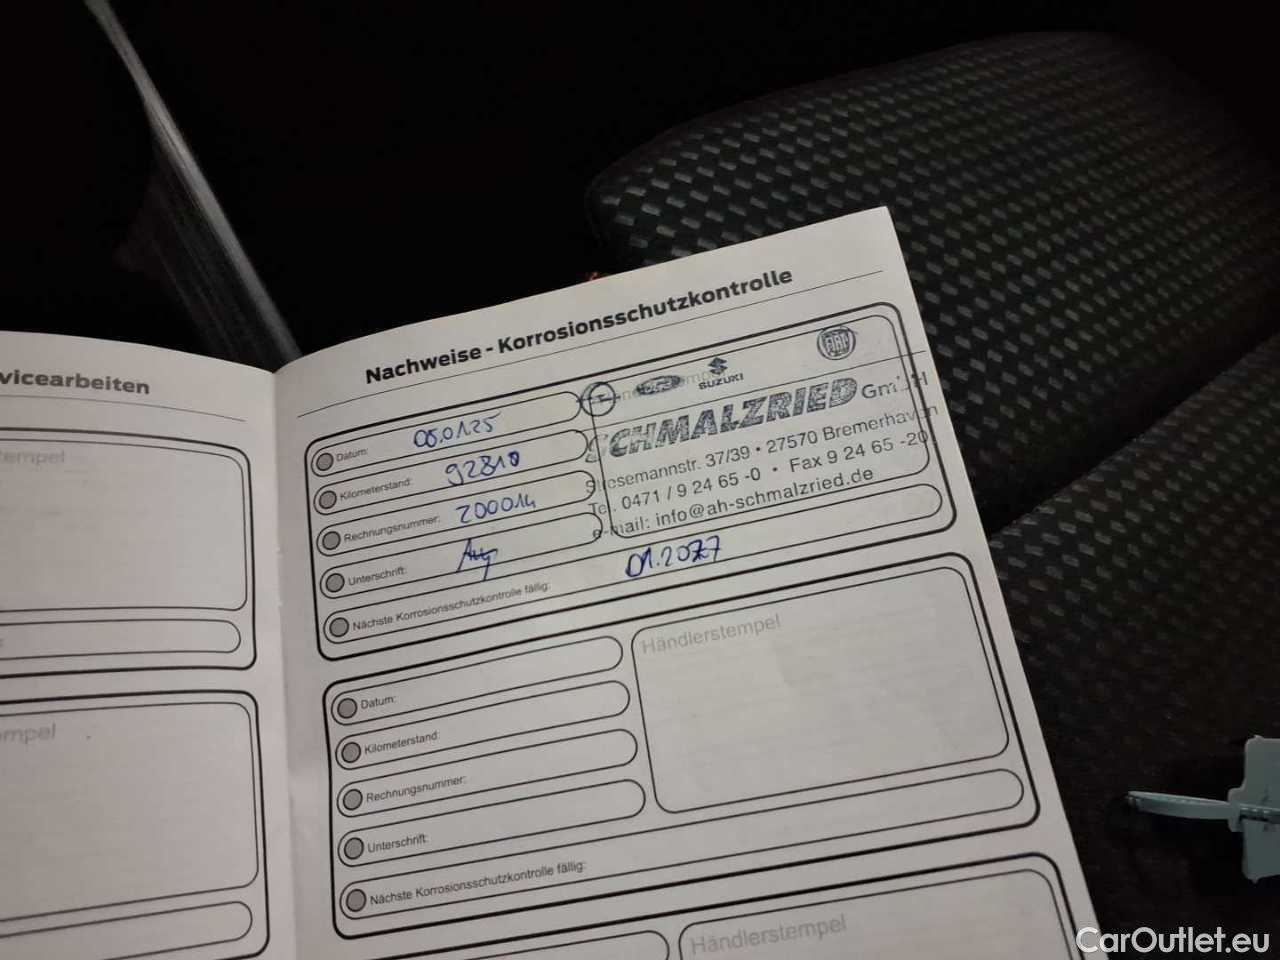 vicearbeiten
tempel
mpel
Nachweise - Korrosionsschutzkontrolle
Datum: 06.01.25
Kilometerstand: 92810
Rechnungsnummer: 200014
Unterschrift:
Nächste Korrosionsschutzkontrolle fällig: 01.2027
SUZUKI
FIAT
SCHMALZRIED GmbH
Stresemannstr. 37/39 • 27570 Bremerhaven
Tel. 0471 / 9 24 65 -0 • Fax 9 24 65 -20
e-mail: info@ah-schmalzried.de
Datum:
Kilometerstand:
Rechnungsnummer:
Unterschrift:
Nächste Korrosionsschutzkontrolle fällig:
Händlerstempel
Händlerstempel
CarOutlet.eu